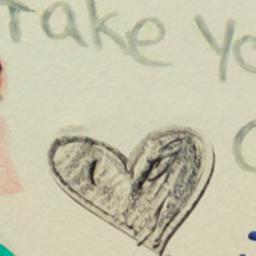 Take yo